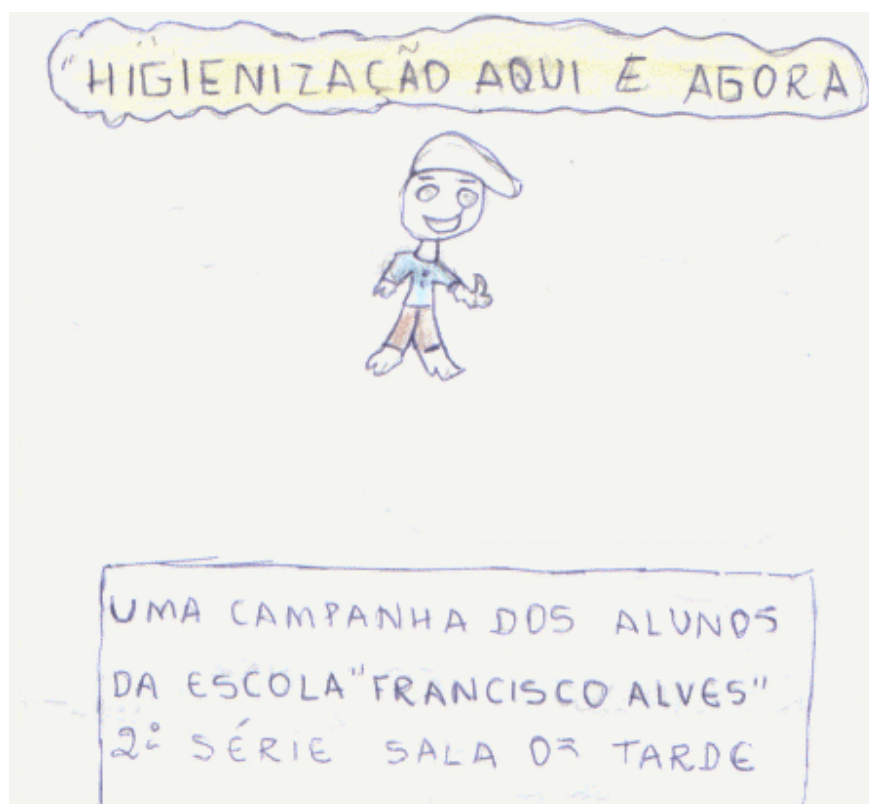 "HIGIENIZAÇÃO AQUI E AGORA
UMA CAMPANHA DOS ALUNOS
DA ESCOLA "FRANCISCO ALVES"
2ª SÉRIE SALA TARDE